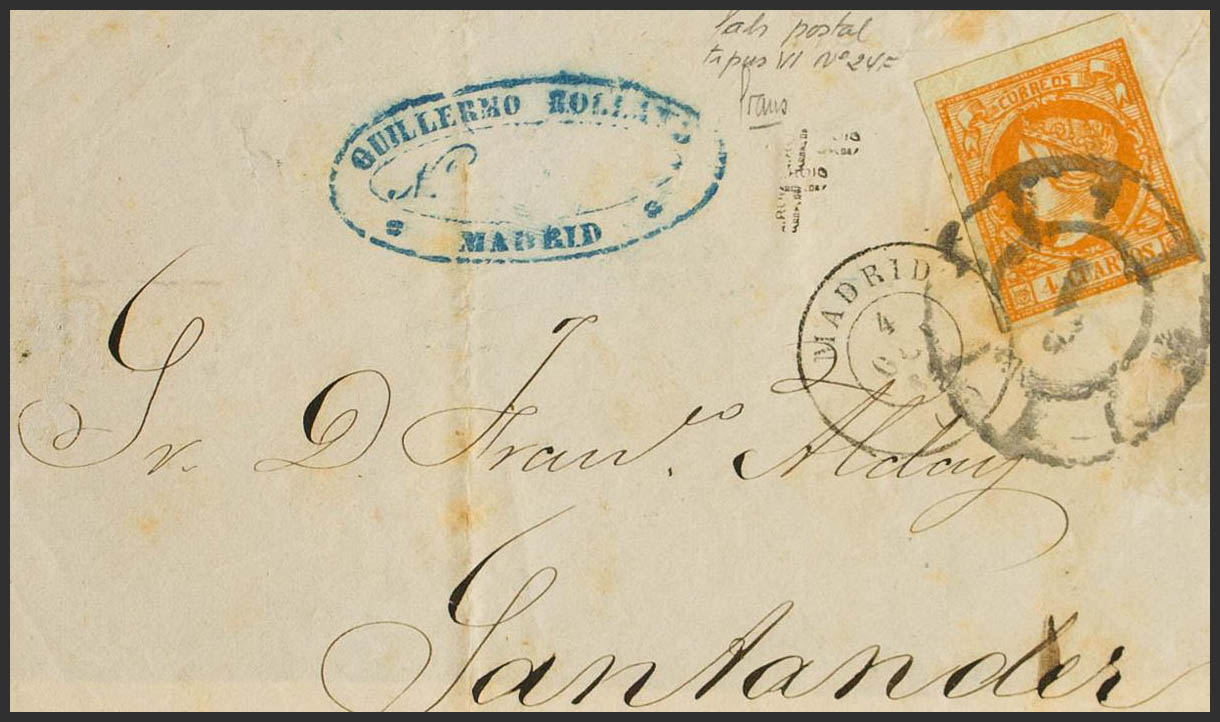 postal
VI Nº 24F
GUILLERMO ROLLAND
MADRID
CORREOS
4 CUARTOS.
MADRID
4
Sr. D. Franco. Alday
Santander